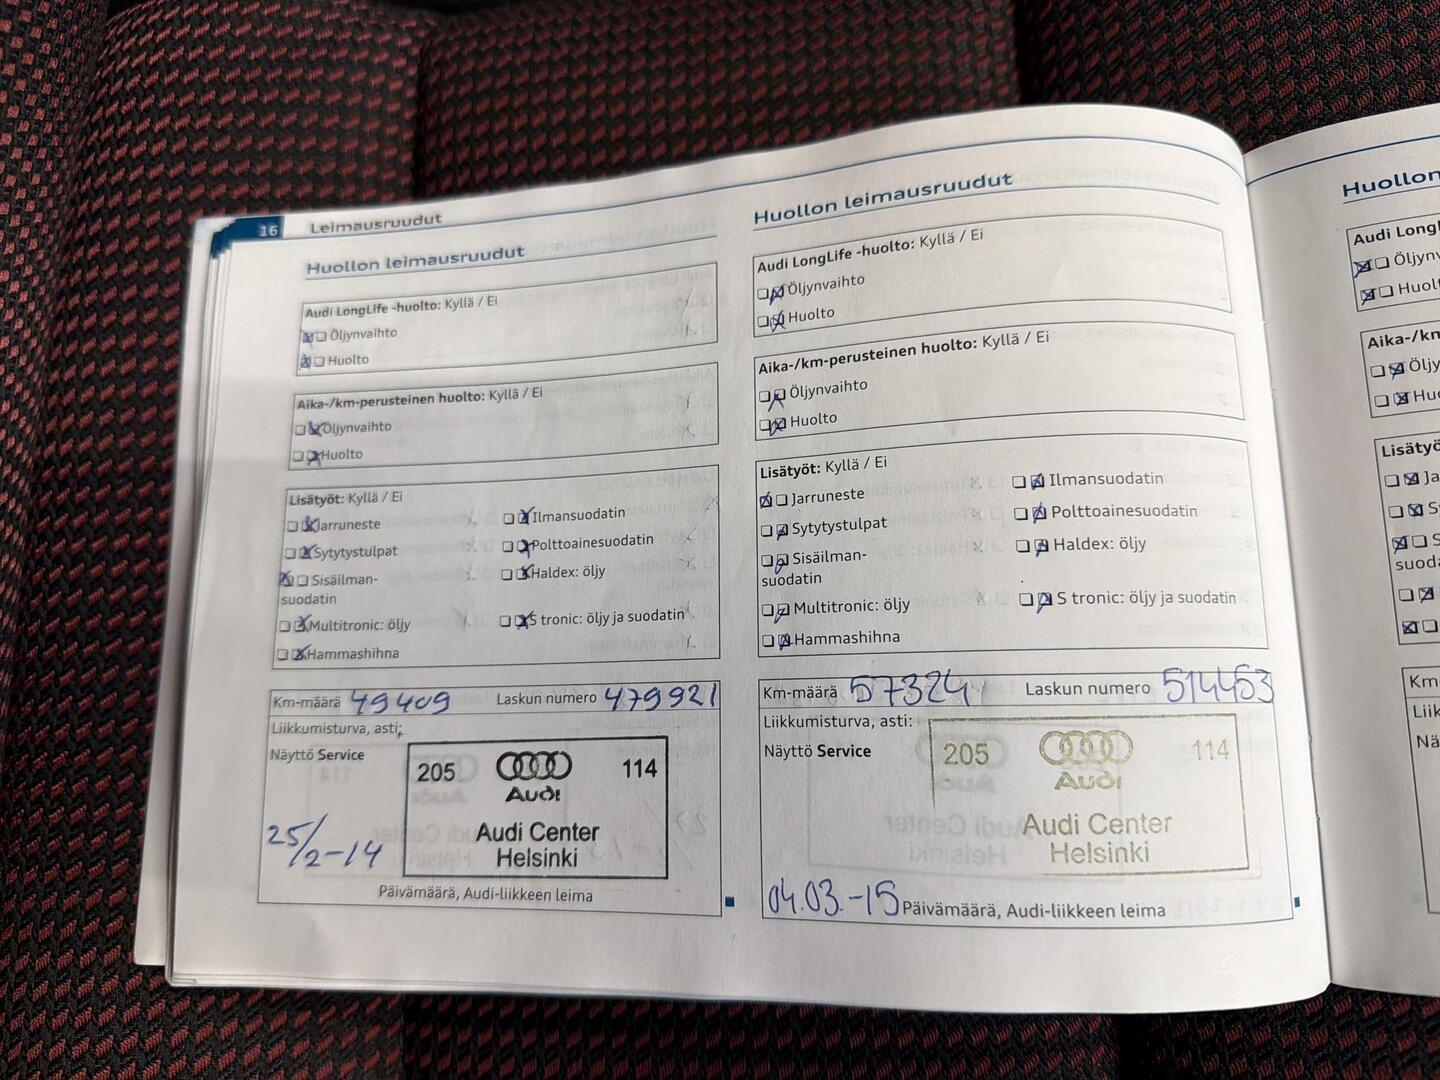 16 Leimausruudut
Huollon leimausruudut
Audi LongLife -huolto: Kyllä / Ei
Öljynvaihto
Huolto
Aika-/km-perusteinen huolto: Kyllä / Ei
Öljynvaihto
Huolto
Lisätyöt: Kyllä / Ei
Jarruneste
Ilmansuodatin
Sytytystulpat
Polttoainesuodatin
Sisäilman-
suodatin
Haldex: öljy
Multitronic: öljy
S tronic: öljy ja suodatin
Hammashihna
Km-määrä 49409 Laskun numero 479921
Liikkumisturva, asti:
Näyttö Service
205 114
Audi
Audi Center
Helsinki
25/2-14
Päivämäärä, Audi-liikkeen leima
Huollon leimausruudut
Audi LongLife -huolto: Kyllä / Ei
Öljynvaihto
Huolto
Aika-/km-perusteinen huolto: Kyllä / Ei
Öljynvaihto
Huolto
Lisätyöt: Kyllä / Ei
Jarruneste
Ilmansuodatin
Sytytystulpat
Polttoainesuodatin
Sisäilman-
suodatin
Haldex: öljy
Multitronic: öljy
S tronic: öljy ja suodatin
Hammashihna
Km-määrä 57324 Laskun numero 514453
Liikkumisturva, asti:
Näyttö Service
205 114
Audi
Audi Center
Helsinki
04.03.-15 Päivämäärä, Audi-liikkeen leima
Huollon
Audi